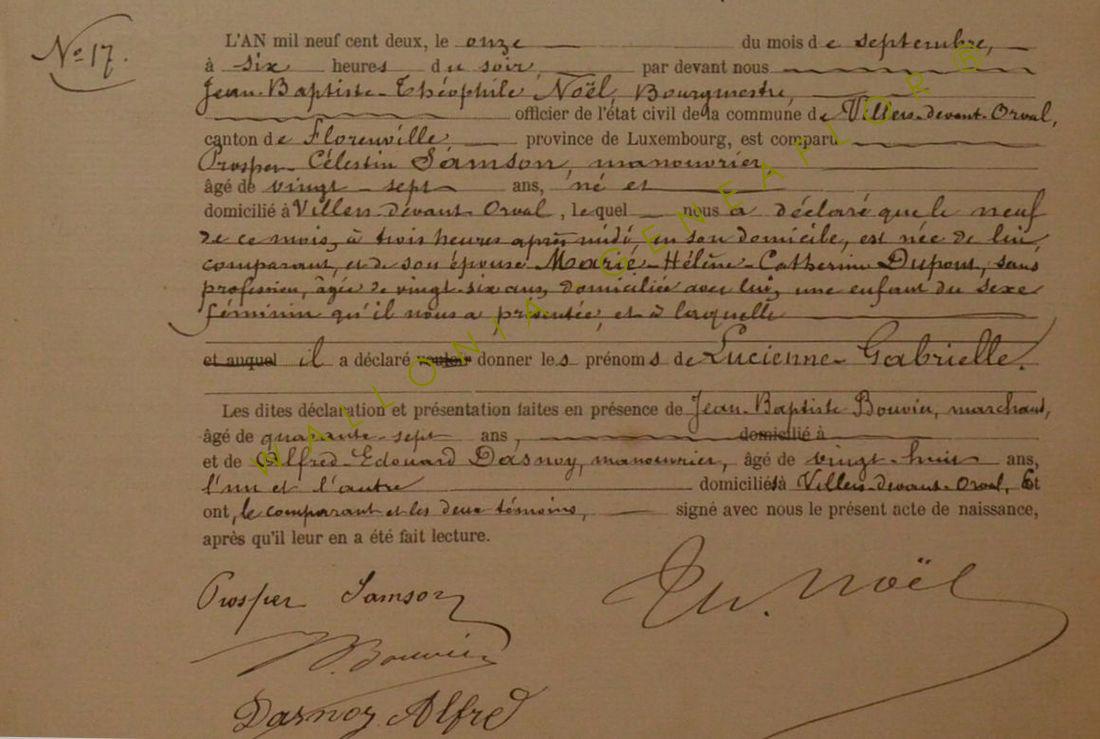 No 17.
L'AN mil neuf cent deux, le onze du mois de septembre,
à six heures du soir, par devant nous
Jean-Baptiste-Théophile Noël, Bourgmestre,
officier de l'état civil de la commune de Villers-devant-Orval,
canton de Florenville province de Luxembourg, est comparu
Prosper-Célestin Samson, manouvrier
âgé de vingt-sept ans, né et
domicilié à Villers-devant-Orval, lequel nous a déclaré que le neuf
de ce mois, à trois heures après midi, en son domicile, est née de lui,
comparant, et de son épouse Marie-Hélène-Catherine Dupont, sans
profession, âgée de vingt-six ans, domiciliée avec lui, une enfant du sexe
féminin qu'il nous a présentée, et à laquelle
et auquel il a déclaré vouloir donner les prénoms de Lucienne-Gabrielle.
Les dites déclaration et présentation faites en présence de Jean-Baptiste Bouvier, marchand,
âgé de quarante-sept ans, domicilié à
et de Alfred-Edouard Dasnoy, manouvrier, âgé de vingt-huit ans,
l'un et l'autre domiciliés à Villers-devant-Orval, Et
ont, le comparant et les deux témoins, signé avec nous le présent acte de naissance,
après qu'il leur en a été fait lecture.
Prosper Samson
Th. Noël
Bouvier
Dasnoy Alfred
WALLONIA GENEAFLOR ®